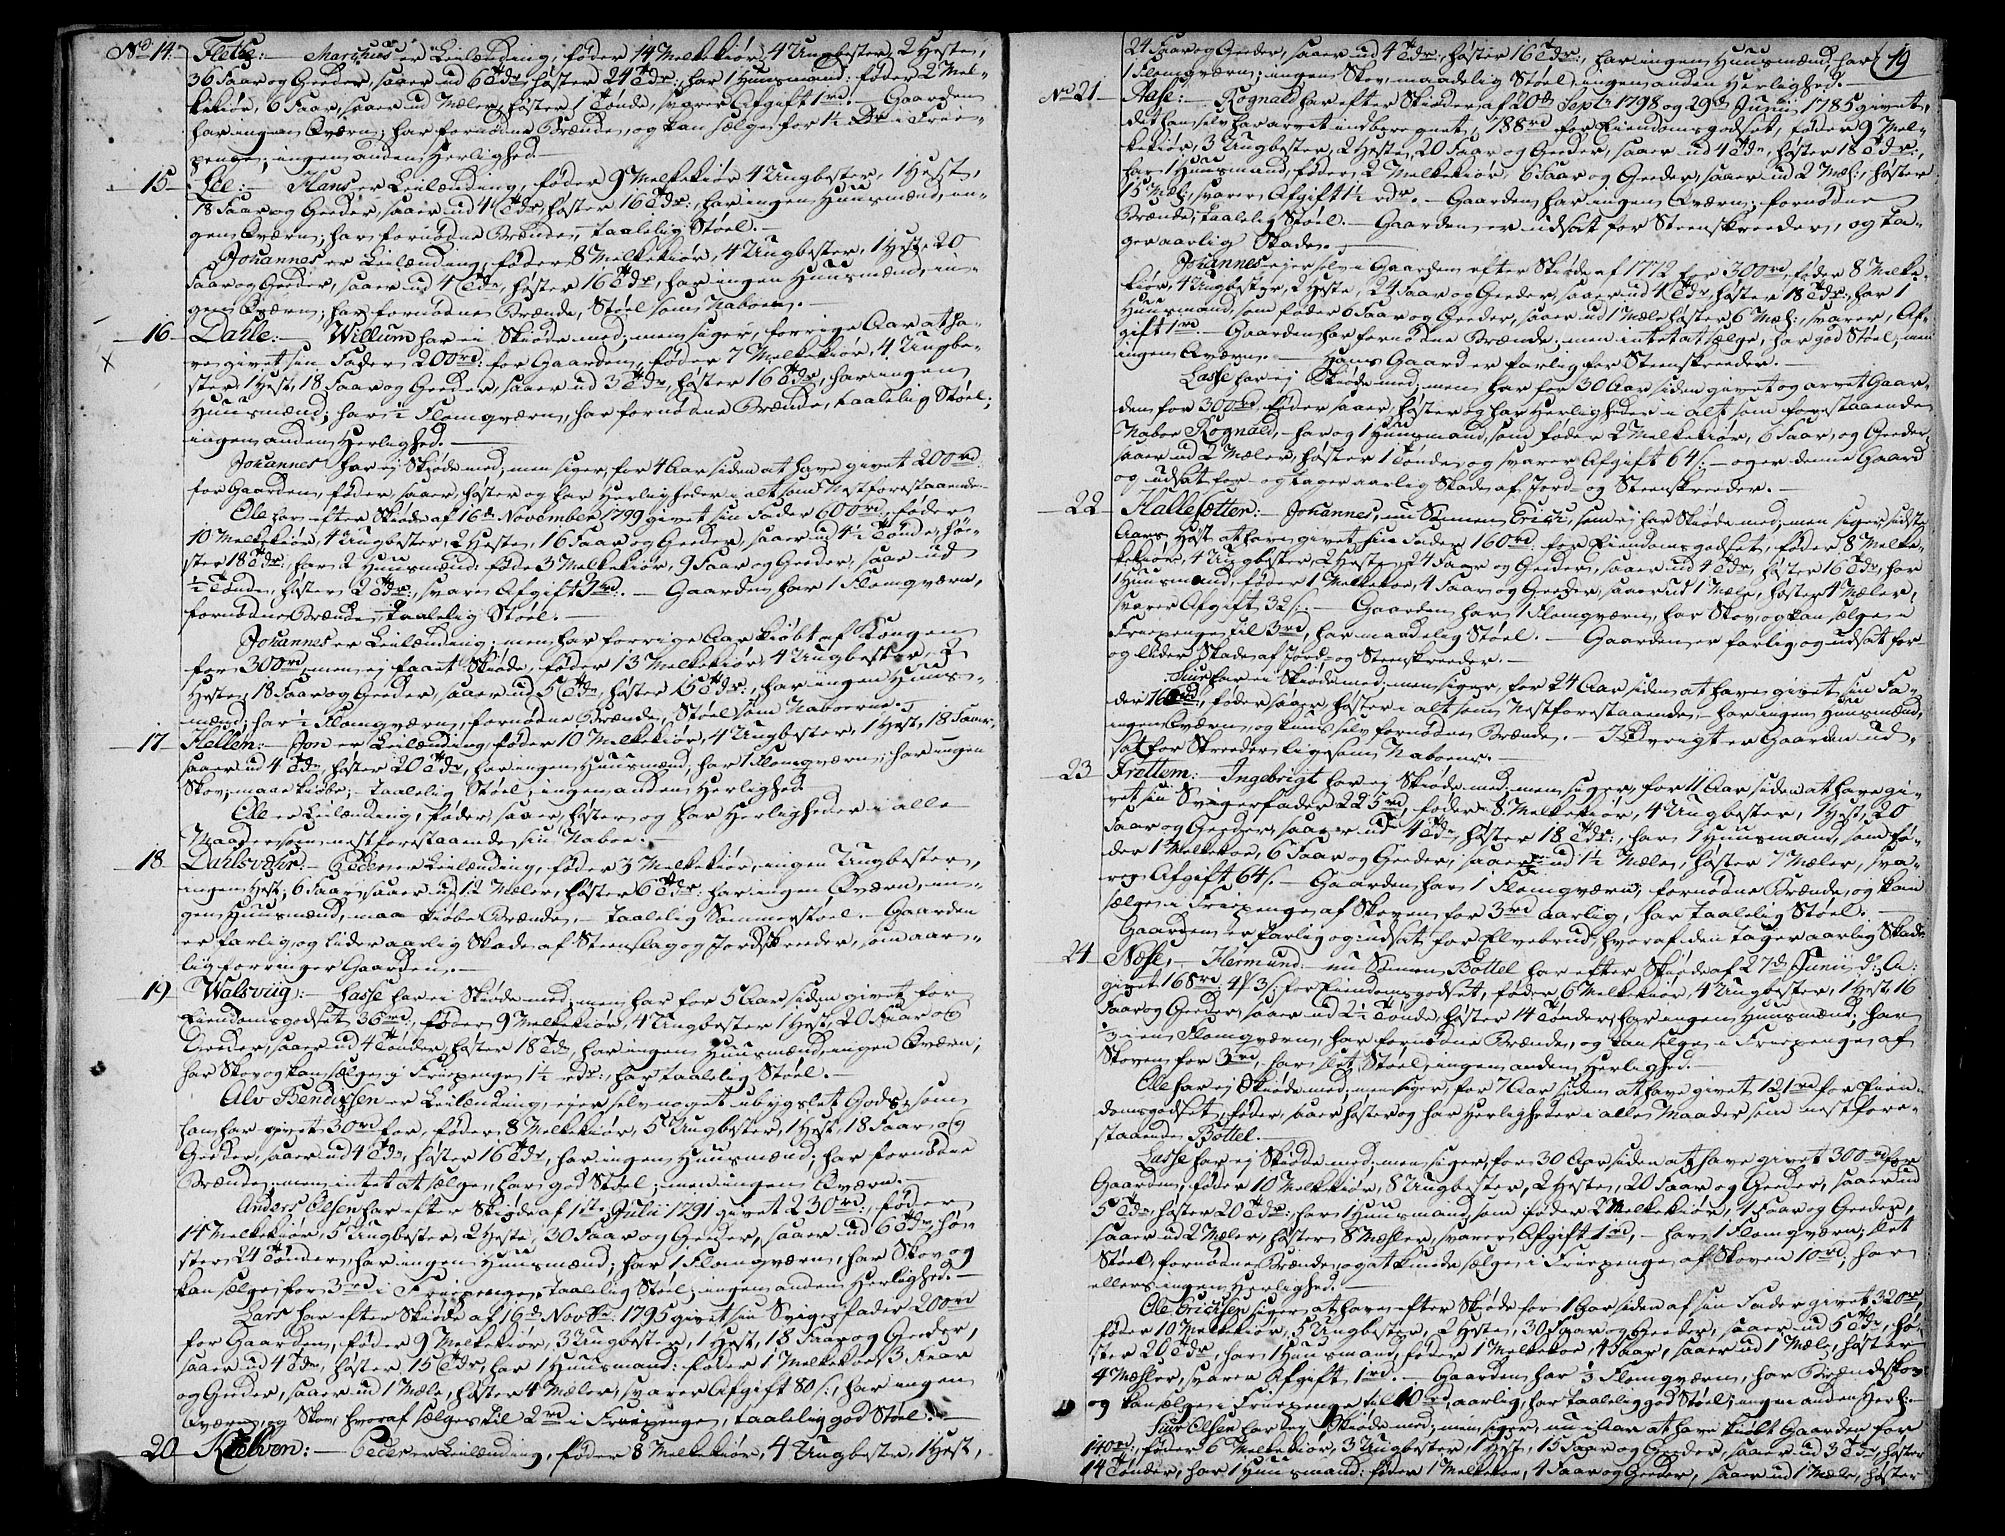 No. 14. Flethe: — Marchus er Leilænding, føder 14 Melkekiør, 4 Ungbester, 2 Heste,
36 Faar og Geeder, saaer ud 6 Tdr, høster 24 Tdr:, har 1 Huusmand: føder 2 Mel-
kekiør, 6 Faar, saaer ud Mæler, høster 1 Tønde, svarer Afgift 1 rd. — Gaarden
har ingen Qværn; har fornødne Brænde, og kan sælge for 1½ Dr i Frie-
penge; ingen anden Herlighed. —
15 Lee: — Hans er Leilænding, føder 9 Melkekiør, 4 Ungbester, 1 Hest,
18 Faar og Geeder, saaer ud 4 Tdr, høster 16 Tdr:, har ingen Huusmænd, in-
gen Qværn; har fornødne Brænde, taalelig Støel. —
Johannes er Leilænding, føder 8 Melkekiør, 4 Ungbester, 1 Hest, 20
Faar og Geeder, saaer ud 4 Tdr, høster 16 Tdr, har ingen Huusmænd, in-
gen Qværn; har fornødne Brænde, Støel som Naboen. —
16 Dahle: — Willum har ei Skiøde med, men siger, forrige Aar at ha-
ve givet sin Fader 200 rd: for Gaarden, føder 7 Melkekiør, 4 Ungbe-
ster, 1 Hest, 18 Faar og Geeder, saaer ud 3 Tdr, høster 16 Tdr, har ingen
Huusmænd; har ½ Flomqværn, har fornødne Brænde, taalelig Støel;
ingen anden Herlighed. —
Johannes har ej Skiøde med, men siger, for 4 Aar siden at have givet 200 rd
for Gaarden, føder, saaer, høster og har Herligheder i alt som Nestforestaaende
Ole har efter Skiøde af 16de November 1799 givet sin Fader 600 rd:, føder
10 Melkekiør, 4 Ungbester, 2 Heste, 16 Faar og Geeder, saaer ud 4½ Tønde, hø-
ster 18 Tdr:, har 2 Huusmænd: føde 3 Melkekiør, 9 Faar og Geeder, saaer ud
½ Tønde, høster 2 Tdr:, svare Afgift rd. — Gaarden har 1 Flomqværn,
fornødne Brænde, taalelig Støel. —
Johannes er Leilænding; men har forrige Aar kiøbt af Kongen
for 300 rd, men ej faaet Skiøde, føder 13 Melkekiør, 4 Ungbester, 2
Heste, 18 Faar og Geeder, saaer ud 5 Tdr, høster 15 Tdr:, har ingen Huus-
mænd; har ½ Flomqværn, fornødne Brænde, Støel som Naboerne.
17 Hellen: — Jon er Leilænding, føder 10 Melkekiør, 4 Ungbester, 1 Hest, 18 Faar,
saaer ud 4 Tdr, høster 20 Tdr, har ingen Huusmænd, har 1 Flomqværn; har ingen
Skov, maae kiøbe; taalelig Støel, ingen anden Herlighed
Ole er Leilænding, føder, saaer, høster og har Herligheder i alle
Maader som nestforestaaende sin Naboe. —
18 Dahlsvæhr: — Peder er Leilænding, føder 3 Melkekiør, ingen Ungbester,
ingen Hest, 6 Faar, saaer ud 1½ Mæler, høster 6 Tdr, har ingen Qværn, in-
gen Huusmænd, maa kiøbe Brænde, — taalelig Sommerstøel. — Gaarden
er farlig, og lider aarlig Skade af Steenslag og Jordskreeder, som aar-
lig forringer Gaarden. —
19 Walsviig: — Lasse har ei Skiøde med, men har for 5 Aar siden givet for
Eiendomsgodset 36 rd:, føder 9 Melkekiør, 4 Ungbester, 1 Hest, 20 Faar og
Geeder, saaer ud 4 Tønder, høster 18 Tdr, har ingen Huusmænd, ingen Qværn;
har Skov og kan sælge i Friepenge 1½ rdr:, har taalelig Støel. —
Alv Bendixsen er Leilænding, ejer selv noget ubygslet Gods, som
han har givet 30 rd for, føder 8 Melkekiør, 5 Ungbester, 1 Hest, 18 Faar og
Geeder, saaer ud 4 Tdr, høster 16 Tdr, har ingen Huusmænd; har fornødne
Brænde, men intet at sælge, har god Støel; men ingen Qværn. —
Anders Olsen har efter Skiøde af 1ste Julii 1791 givet 230 rd:, føder
14 Melkekiør, 5 Ungbester, 2 Heste, 30 Faar og Geeder, saaer ud 6 Tdr, hø-
ster 24 Tønder, har ingen Huusmænd; har 1 Flomqværn, har Skov og
kan sælge for 3 rd i Friepenge, taalelig Støel; ingen anden Herlighed. —
Lars har efter Skiøde af 16de Novbr. 1795 givet sin Svigerfader 200 rd
for Gaarden, føder 9 Melkekiør, 3 Ungbester, 1 Hest, 18 Faar og Geeder,
saaer ud 4 Tdr, høster 15 Tdr, har 1 Huusmand: føder 1 Melkekoe, 3 Faar
og Geeder, saaer ud 1 Mæle, høster 4 Mæler, svarer Afgift 80 s:, har ingen
Qværn, og Skov, hvoraf sælges til 2 rd i Friepenge, taalelig god Støel. —
20 Kielven: — Peder er Leilænding, føder 8 Melkekiør, 4 Ungbester, 1 Hest,
19
24 Faar og Geeder, saaer ud 4 Tdr:, høster 16 Tdr:, har ingen Huusmænd, har
1 Flomqværn; ingen Skov, maadelig Støel, ingen anden Herlighed.
No 21 Aase: — Rognald har efter Skiøder af 20de Sept. 1798 og 29de Junii 1785 givet,
det han selv har arvet indberegnet, 188 rd for Eiendomsgodset, føder 9 Mel-
kekiør, 3 Ungbester, 2 Heste, 20 Faar og Geeder, saaer ud 4 Tdr, høster 18 Tdr:,
har 1 Huusmand, føder 2 Melkekiør, 6 Faar og Geeder, saaer ud 2 Mæl:, høster
15 Mæl:, svarer Afgift 1½ rdr. — Gaarden har ingen Qværn; fornødne
Brænde; taalelig Støel. — Gaarden er udsat for Steenskreeder, og ta-
ger aarlig Skade. —
Johannes ejer selv i Gaarden efter Skiøde af 1772 for 300 rd, føder 8 Melke-
kiør, 4 Ungbester, 2 Heste, 24 Faar og Geeder, saaer ud 4 Tdr, høster 18 Tdr:, har 1
Huusmand, som føder 6 Faar og Geeder, saaer ud 1 Mæle, høster 6 Mæl:, svarer Af-
gift 1 rd — Gaarden har fornødne Brænde; men intet at sælge, har god Støel, men
ingen Qværn. — Hans Gaard er farlig for Steenskreeder. —
Lasse har ej Skiøde med; men har for 30 Aar siden givet og arvet Gaar-
den for 300 rd, føder, saaer, høster og har Herligheder i alt som forestaaende
Naboe Rognald, — har og 1 Huusmand, som føder 2 Melkekiør, 6 Faar og Geeder,
saaer ud 2 Mæler, høster 1 Tønde, og svarer Afgift 64 s: — og er denne Gaard
og udsat for — og tager aarlig Skade af Jord- og Steenskreeder. —
22 Hallesætter: — Johannes, nu Sønnen Erich, som ej har Skiøde med, men siger, sidste
Aars Høst at have givet sin Fader 160 rd: for Eiendomsgodset, føder 8 Melke-
kekiør, 4 Ungbester, 2 Heste, 24 Faar og Geeder, saaer ud 4 Tdr, høster 16 Tdr, har
1 Huusmand, føder 1 Melkekoe, 4 Faar og Geeder, saaer ud 1 Mæle, høster 4 Mæler,
svarer Afgift 32 s: — Gaarden har 1 Flomqværn, har Skov, og kan sælge i
Friepenge til 3 rd, har maadelig Støel. — Gaarden er farlig og udsat for-
og lider Skade af Jord- og Steenskreeder. —
Siur har ei Skiøde med; men siger, for 24 Aar siden at have givet sin Fa-
der 160 rd, føder, saaer, høster i alt som Nestforestaaende, — har ingen Huusmænd,
ingen Qværn, og kuns selv fornødne Brænde. — I øvrigt er Gaarden ud-
sat for Skreeder ligesom Naboens. —
23 Frettem: — Ingebrigt har ej Skiøde med, men siger, for 11 Aar siden at have gi-
vet sin Svigerfader 225 rd, føder 8 Melkekiør, 4 Ungbester, 1 Hest, 20
Faar og Geeder, saaer ud 4 Tdr, høster 18 Tdr:, har 1 Huusmand, som fø-
der 1 Melkekoe, 6 Faar og Geeder, saaer ud 1½ Mæle, høster 7 Mæler, sva-
rer Afgift 64 s. — Gaarden har 1 Flomqværn; fornødne Brænde, og kan
sælge i Friepenge af Skoven for 3 rd aarlig, har taalelig Støel. —
Gaarden er farlig og udsat for Elvebrud, hvoraf den tager aarlig Skade
24 Næse, — Hermund: nu Sønnen Bottel har efter Skiøde af 27de Junii d: A:
givet 168 rd 4 3 s: for Eiendomsgodset, føder 6 Melkekiør, 4 Ungbester, 1 Hest, 16
Faar og Geeder, saaer ud 2½ Tønde, høster 14 Tønder, har ingen Huusmænd; har
en Flomqværn, har fornødne Brænde, og kan sælge i Friepenge af
Skoven for 3 rd, har slet Støel, ingen anden Herlighed. —
Ole har ej Skiøde med; men siger, for 7 Aar siden at have givet 121 rd for Eien-
domsgodset, føder, saaer, høster og har Herligheder i alle Maader som nestfore-
staaende Bottel. —
Lasse har ej Skiøde med; men siger, for 30 Aar siden at have givet 300 rd for
Gaarden, føder 10 Melkekiør, 8 Ungbester, 2 Heste, 20 Faar og Geeder, saaer ud
5 Tdr, høster 20 Tdr:, har 1 Huusmand, som føder 2 Melkekiør, 4 Faar og Geeder,
saaer ud 2 Mæler, høster 8 Mæhler, svarer Afgift 1 rd, — har 1 Flomqværn, slet
Støel, fornødne Brænde, og at kunde sælge i Friepenge af Skoven 10 rd; har
ellers ingen Herlighed. —
Ole Erichsen siger, at have efter Skiøde for 1 Aar siden af sin Fader givet 320 rd,
føder 10 Melkekiør, 5 Ungbester, 2 Heste, 30 Faar og Geeder, saaer ud 5 Tdr, hø-
ster 20 Tdr, har 1 Huusmand, føder 1 Melkekoe, 4 Faar, saaer ud 1 Mæle, høster
4 Mæhler, svarer Afgift 1 rd. — Gaarden har 3 Flomqværn, har Brændeskov
og kan sælge i Friepenge til 10 rd, aarlig, har taalelig god Støel; ingen anden Herl: —
Siur Olsen har ej Skiøde med, men siger, nu i Aar at have kiøbt Gaarden for
140 rd:, føder 6 Melkekiør, 3 Ungbester, 1 Hest, 15 Faar og Geeder, saaer ud 3 Tdr, høster
14 Tønder, har 1 Huusmand: føder 1 Melkekoe, 4 Faar og Geeder, saaer ud 1 Mæle, høster